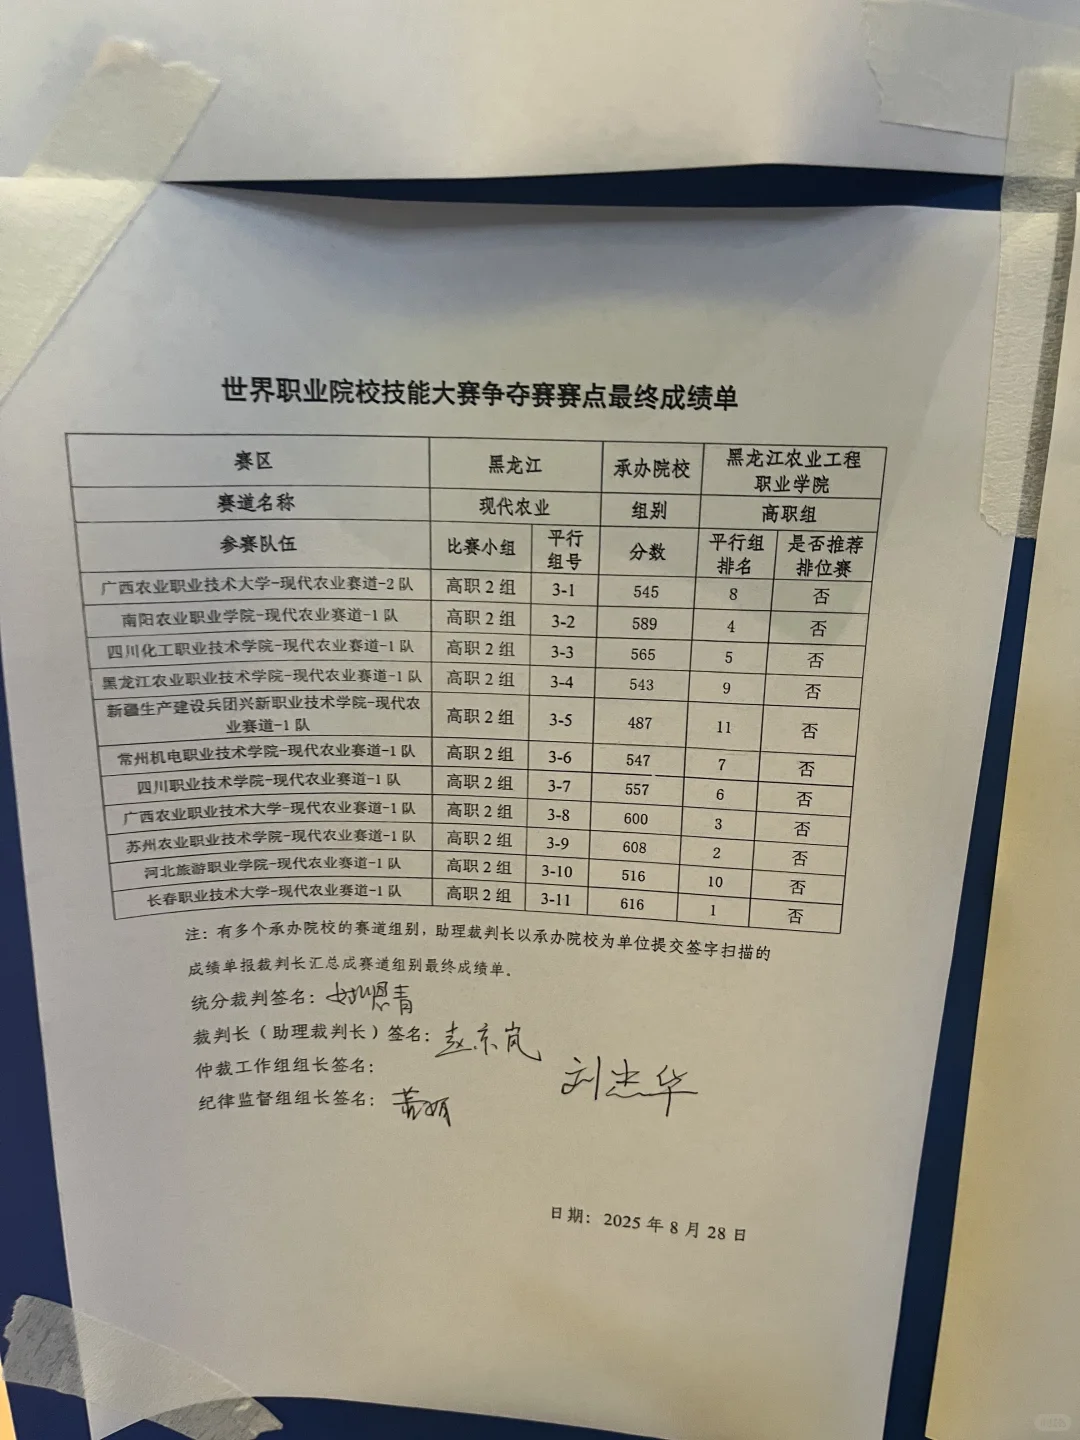 世界职业院校技能大赛争夺赛赛点最终成绩单
赛区 黑龙江 承办院校 黑龙江农业工程职业学院
赛道名称 现代农业 组别 高职组
参赛队伍 比赛小组 平行组号 分数 平行组排名 是否推荐排位赛
广西农业职业技术大学-现代农业赛道-2队 高职2组 3-1 545 8 否
南阳农业职业学院-现代农业赛道-1队 高职2组 3-2 589 4 否
四川化工职业技术学院-现代农业赛道-1队 高职2组 3-3 565 5 否
黑龙江农业职业技术学院-现代农业赛道-1队 高职2组 3-4 543 9 否
新疆生产建设兵团兴新职业技术学院-现代农业赛道-1队 高职2组 3-5 487 11 否
常州机电职业技术学院-现代农业赛道-1队 高职2组 3-6 547 7 否
四川职业技术学院-现代农业赛道-1队 高职2组 3-7 557 6 否
广西农业职业技术大学-现代农业赛道-1队 高职2组 3-8 600 3 否
苏州农业职业技术学院-现代农业赛道-1队 高职2组 3-9 608 2 否
河北旅游职业学院-现代农业赛道-1队 高职2组 3-10 516 10 否
长春职业技术大学-现代农业赛道-1队 高职2组 3-11 616 1 否
注：有多个承办院校的赛道组别，助理裁判长以承办院校为单位提交签字扫描的
成绩单报裁判长汇总成赛道组别最终成绩单。
统分裁判签名：
裁判长（助理裁判长）签名：赵京岚
仲裁工作组组长签名：刘忠华
纪律监督组组长签名：
日期：2025年8月28日